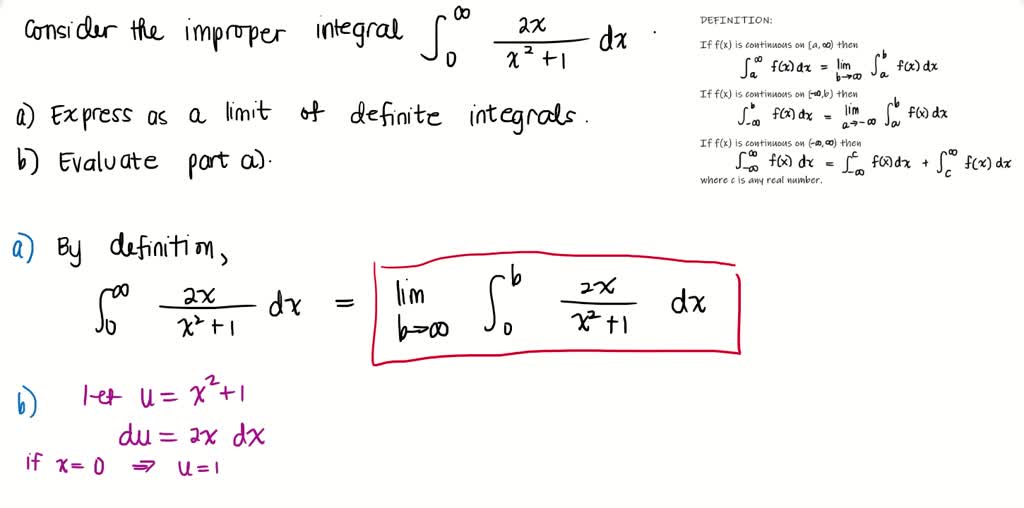 Consider the improper integral ∫₀^∞ 2x/(x²+1) dx .
a) Express as a limit of definite integrals.
b) Evaluate part a).
DEFINITION:
If f(x) is continuous on [a,∞) then
∫ₐ^∞ f(x) dx = lim b→∞ ∫ₐ^b f(x) dx
If f(x) is continuous on (-∞,b) then
∫₋∞^b f(x) dx = lim a→-∞ ∫ₐ^b f(x) dx
If f(x) is continuous on (-∞,∞) then
∫₋∞^∞ f(x) dx = ∫₋∞^c f(x) dx + ∫_c^∞ f(x) dx
where c is any real number.
a) By definition,
∫₀^∞ 2x/(x²+1) dx = lim b→∞ ∫₀^b 2x/(x²+1) dx
b) let u = x²+1
du = 2x dx
if x=0 ⇒ u=1